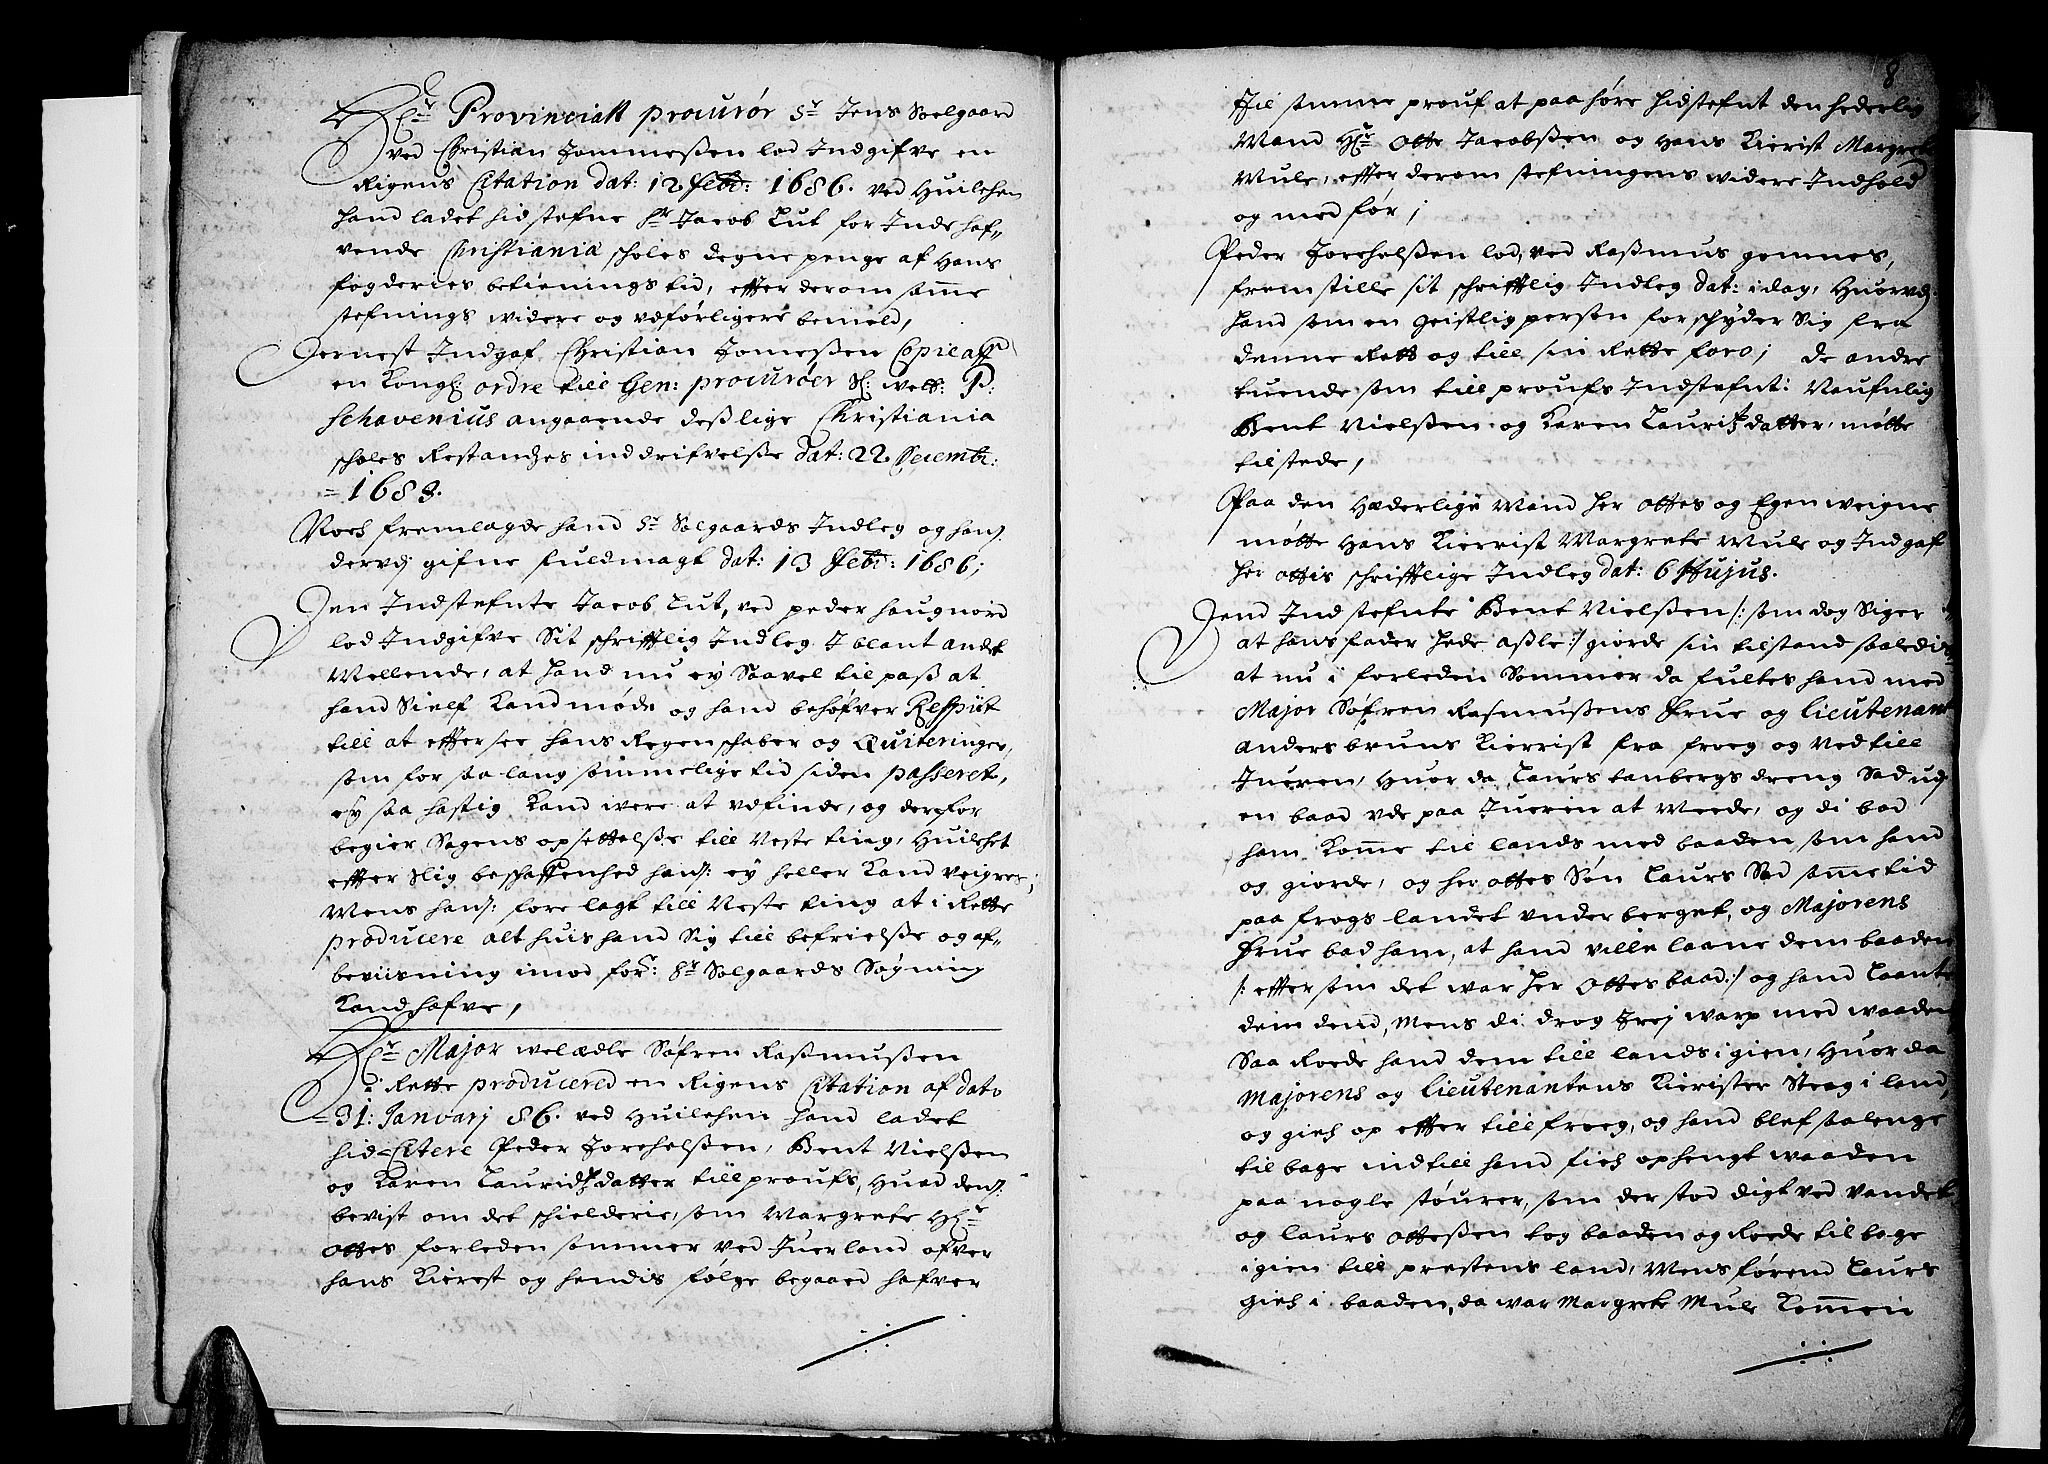 Hr Provinciall procurør Sr Jens Soelgaard
ved Christian Jommesßen lod Indgifve en
Rigens Citation dat: 12 Febr: 1686. ved Huilchen
hand ladet hid stefne Sr Jacob Lut for Inde haf„
vende Christiania scholes degne penge af Hans
fogderies betienings tid, effter derom samme
stefnings widere og vdførligere bemeld,
Dernest Indgaf Christian Jomesßen Copie aff
en Kongl: ordre till Gen: procurøer Sl: welb: P:
Schavenius angaaende deßlige Christiania
scholes Restandzes inddrifvelße dat: 22 Decembr:
1683.
Noch fremlagde hand Sr Solgaards Indleg og hanß
dervdj gifne fuldmagt dat: 13 Febr: 1686;
Den Indstefnte Jacob Lut, ved peder haugnord
lod Indgifve Sit schrifftlig Indleg I blant andet
Mellende, at hand nu ey Saavel til paß at
hand Sielf Kand møde og hand behøfver Respiit
till at effter see hans Regenschaber og Quiteringer,
som for saa lang sommelige tid siden passeret,
ey saa hastig Kand were at vdfinde, og derfor
begier Sagens opsettelße till Neste ting, Huilchet
effter Slig beschaffenhed hanß: ey heller Kand veigres;
Mens hanß: fore lagt till Neste ting at i Rette
producere alt huis hand Sig till befrielße og af„
beviisning imod forr: Sr Solgaards Søgning
Kand hafve,
Hr Major welædle Søfren Raßmusßen
i Rette producered en Rigens Citation af dato
31: Januarj 86. ved Huilchen hand ladet
hid Citere Peder Torchelsßen, Bent Nielsßen
og Karen Lauridtzdatter till proufs, Huad denß:
bevist om det schielderie, som Margrete Hr
Ottes forleden sommer ved Juerland ofver
hans Kierest og hendis følge begaaed hafver
8
Til samme prouf at paa høre hidstefnt den hederlig
Mand Hr Otte Jacobsßen og Hans Kierist Margrete
Mule, effter derom stefningens widere Indhold
og med før;
Peder Torchelsßen lod, ved Raßmus gomnes,
fremstille sit schrifftlig Indleg dat: idag, Huorvdj
hand som en Geistlig person forschyder Sig fra
denne Rett og till sin Rette foro; de andre
tuende som till proufs Indstefnt: Naufnlig
Bent Nielsßen og Karen Lauritzdatter, møtte
tilstede,
Paa den Hæderlige Mand her Ottes og Egen weigne
møtte Hans Kierrist Margrete Mule og Indgaf
her Ottis schrifftlige Indleg dat: 6 Hujus.
Dend Indstefnte Bent Nielsßen /: som dog Siger
at hans fader hede aßle :/ giorde sin tilstand saaledis
at nu i forleden Sommer da fultes hand med
Major Søfren Rasmusßens Frue og Lieutenant
Anders bruns Kierrist fra froeg og Ned till
Jueren, Huor da Laurs tanbergs dreng Sad udj
en baad vde paa Jueren at Meede, og di bad
ham Komme til lands med baaden som hand
og giorde, og her Ottes Søn Laurs Sad samme tid
paa frogs landet vnder berget, og Majorens
Frue bad ham, at hand ville laane dem baaden
/: effter som det war her Ottes baad :/ og hand Laante
dem dend, Mens di drog Trej warp med waaden
Saa Roede hand dem till lands igien, Huor da
Majorens og Lieutenantens Kierister Steeg i land,
og gich op effter till froeg, og hand blef saa lenge
til bage indtill hand fich ophengt waaden
paa nogle støurer, som der stod digt ved vandet
og Laurs Ottesßen tog baaden og Roede til bage
igien till prestens land, Mens førend Laurs
gich i baaden, da war Margrete Mule Kommen